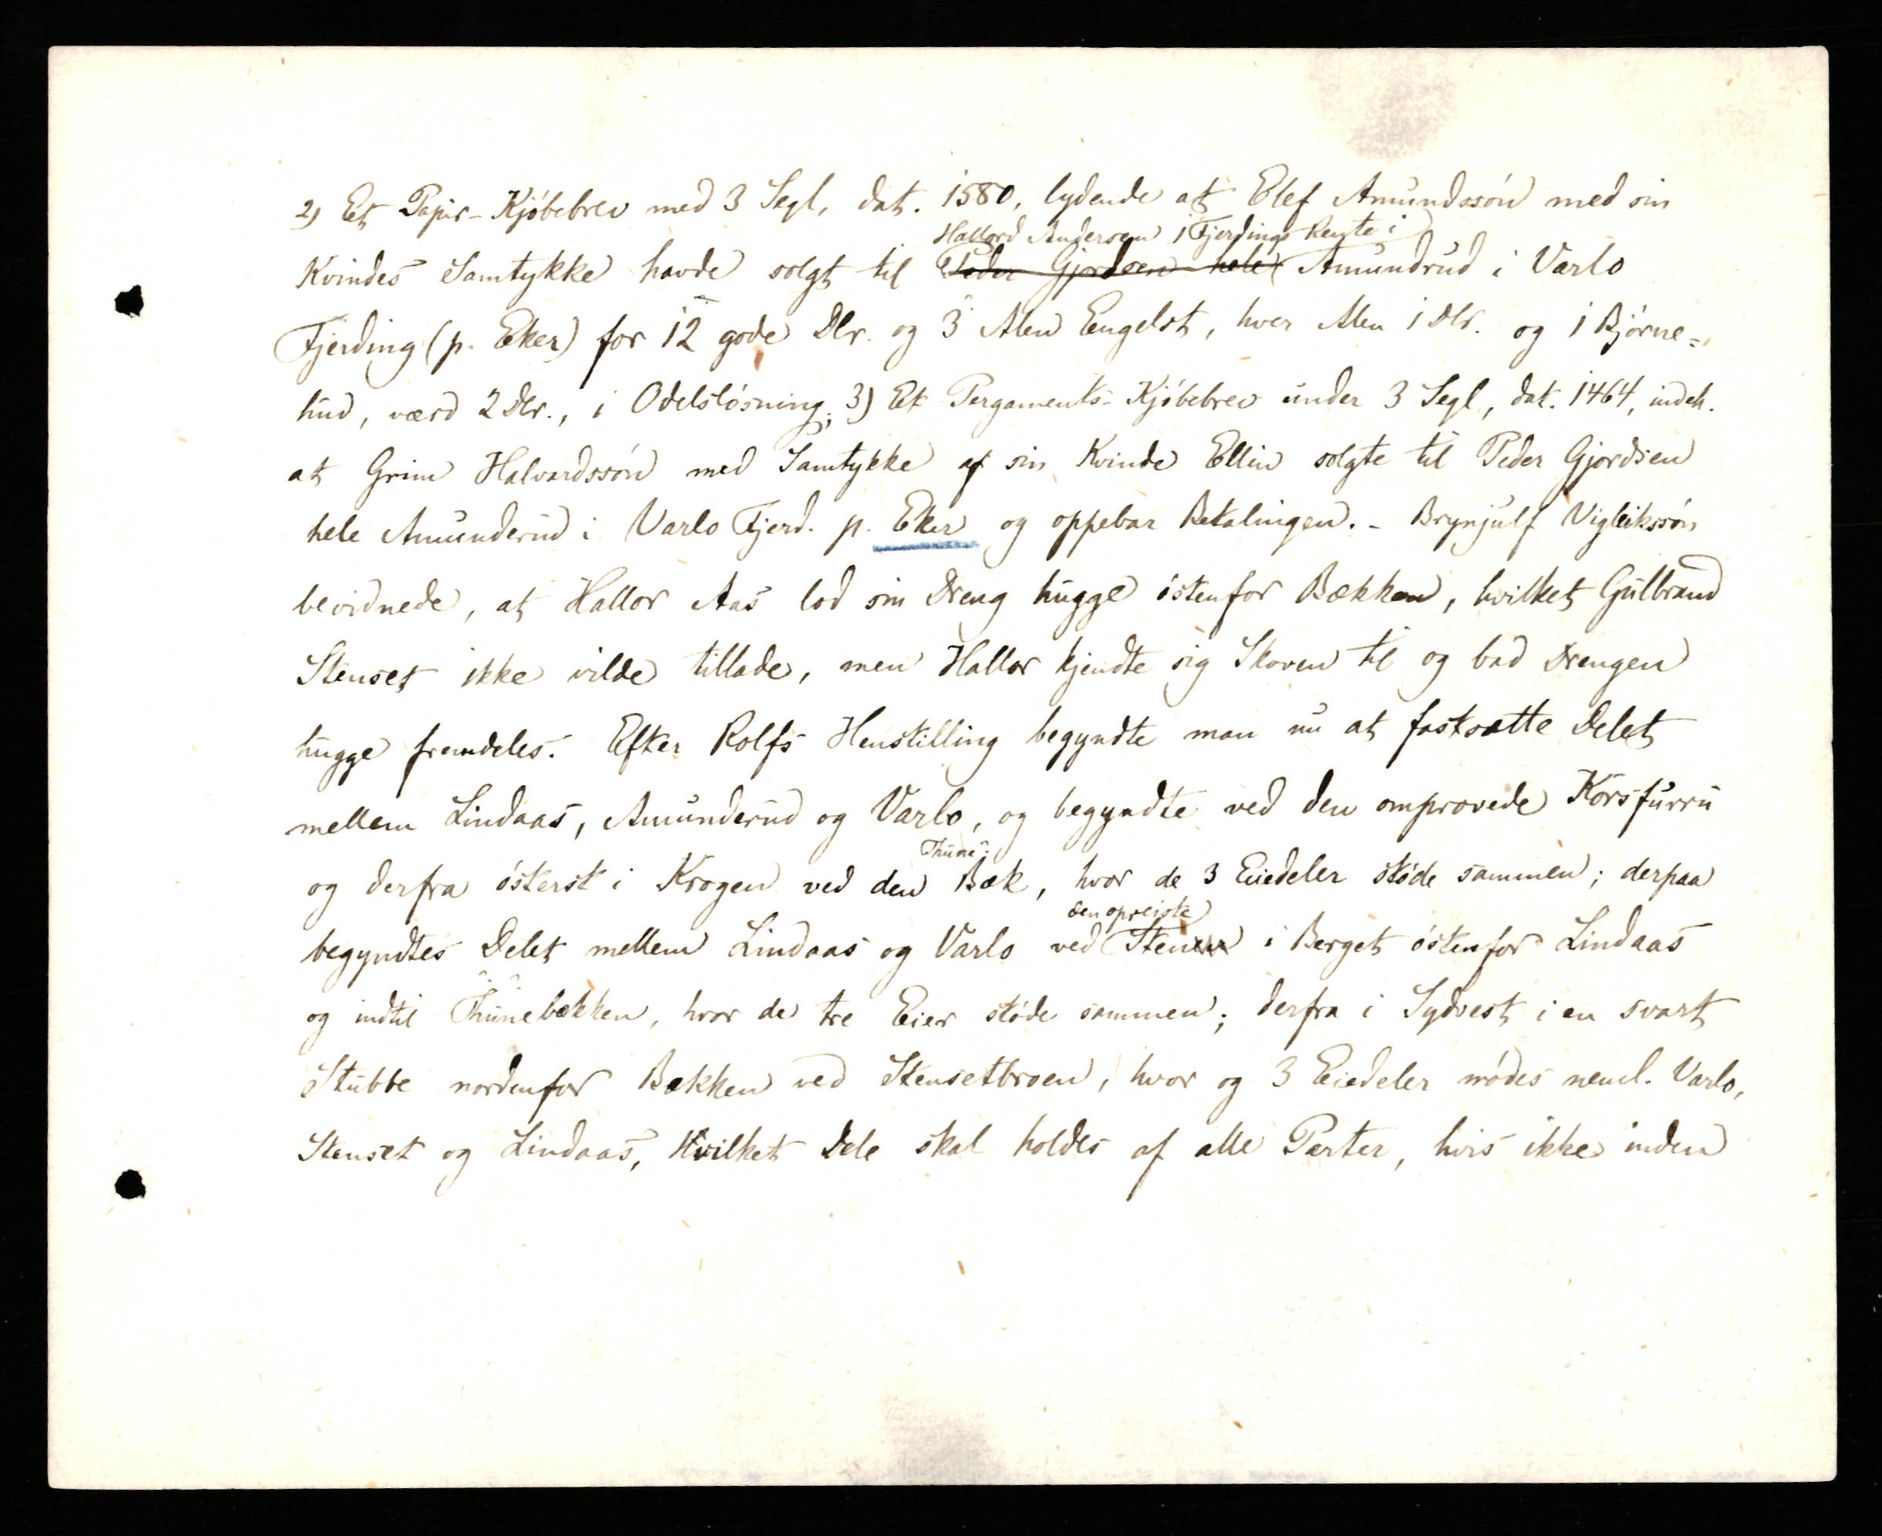 2) Et Papir-Kjøbebrev med 3 Segl, dat. 1580, lydende at Elef Amundssøn med sin
Hallord Andersen 1 Fjerdings Rente i
Kvindes Samtykke havde solgt til Peder Gjordsen hele Amundrud i Varlo
Fjerding (p. Eker) for 12 gode Dlr. og 3 Alen Engelst, hver Alen 1 Dlr. og 1 Bjørne=
hud, værd 2 Dlr., i Odelsløsning; 3) Et Pergaments-Kjøbebrev under 3 Segl, dat. 1464, indeh.
at Grim Halvardssøn med Samtykke af sin Kvinde Ellin solgte til Peder Gjordsen
hele Amunderud i Varlo Fjerd. p. Eker og oppebar Betalingen. - Brynjulf Vigleikssøn
bevidnede, at Hallor Aas lod sin Dreng hugge østenfor Bækken, hvilket Gulbrand
Stenset ikke vilde tillade, men Hallor kjendte sig Skoven til og bad Drengen
hugge fremdeles. Efter Rolfs Henstilling begyndte man nu at fastsætte Delet
mellem Lindaas, Amunderud og Varlo, og begyndte ved den omprovede Korsfurru
Thune-
og derfra østerst i Krogen ved den Bæk, hvor de 3 Eiedeler støde sammen; derpaa
den opreiste
begyndtes Delet mellem Lindaas og Varlo ved Stenen i Berget østenfor Lindaas
og indtil Thunebekken, hvor de tre Eier støde sammen; derfra i Sydvest i en svart
Stubbe nordenfor Bekken ved Stensetbroen, hvor og 3 Eiedeler mødes neml. Varlo,
Stenset og Lindaas, Hvilket Dele skal holdes af alle Parter, hvis ikke inden